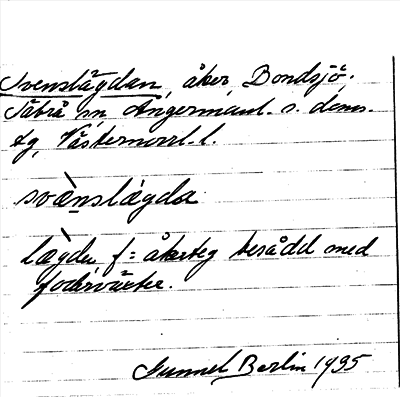 Svenslägdan, åker, Bondsjö.
Säbrå sn, Ångermanl. s. doms.
tg, Västernorrl. l.
svæ̀nslágda
læ̀gdu f = åkerteg besådd med
foderväxter.
Gunnel Berlin 1935